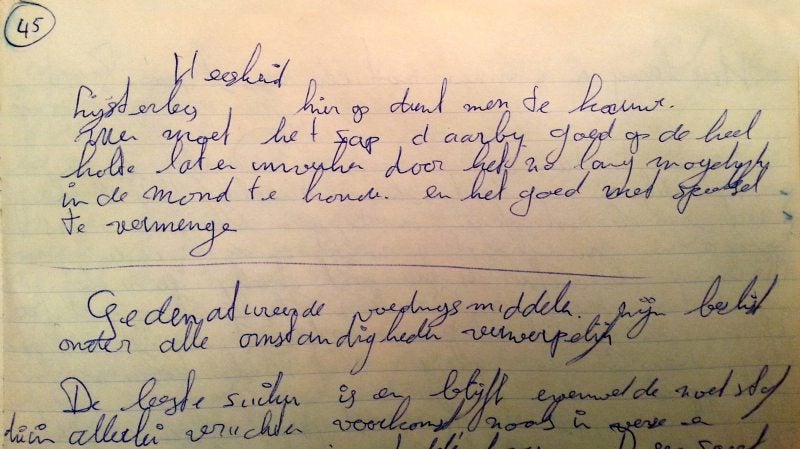 45
Heeskeid
Lijsterbes hier op dient men te kauwe.
men moet het sap daarby goed op de keel
holte laten inwerken door het zo lang mogelijk
in de mond te houde. en het goed met speeksel
te vermenge
Gedenatureerde voedingsmiddele. zijn beslist
onder alle omstandigheden verwerpelijk
De beste suiker is en blijft evenwel de
allerlei vruchten voorkomt, zoals in